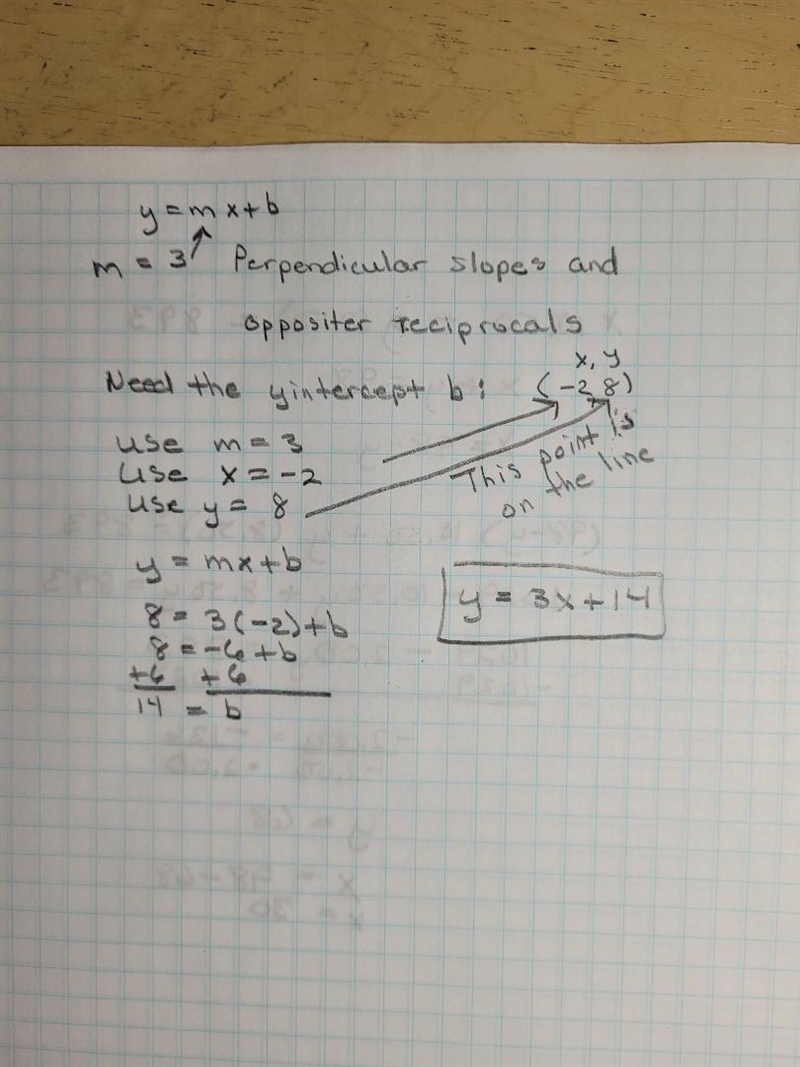 y = mx + b
m = 3 Perpendicular slopes and
oppositer reciprocals
x, y
Need the yintercept b: (-2, 8)
use m = 3
Use x = -2
Use y = 8
This point is
on the line
y = mx + b
8 = 3(-2) + b
8 = -6 + b
+6 +6
14 = b
y = 3x + 14